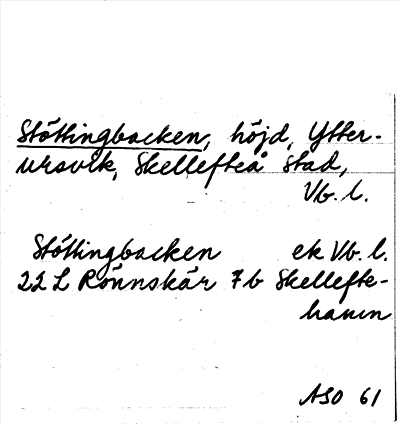 Stöttingbacken, höjd, Ytter-
ursvik, Skellefteå stad,
Vb. l.
Stöttingbacken ek Vb. l.
22 L Rönnskär 7b Skellefte-
hamn
ASO 61